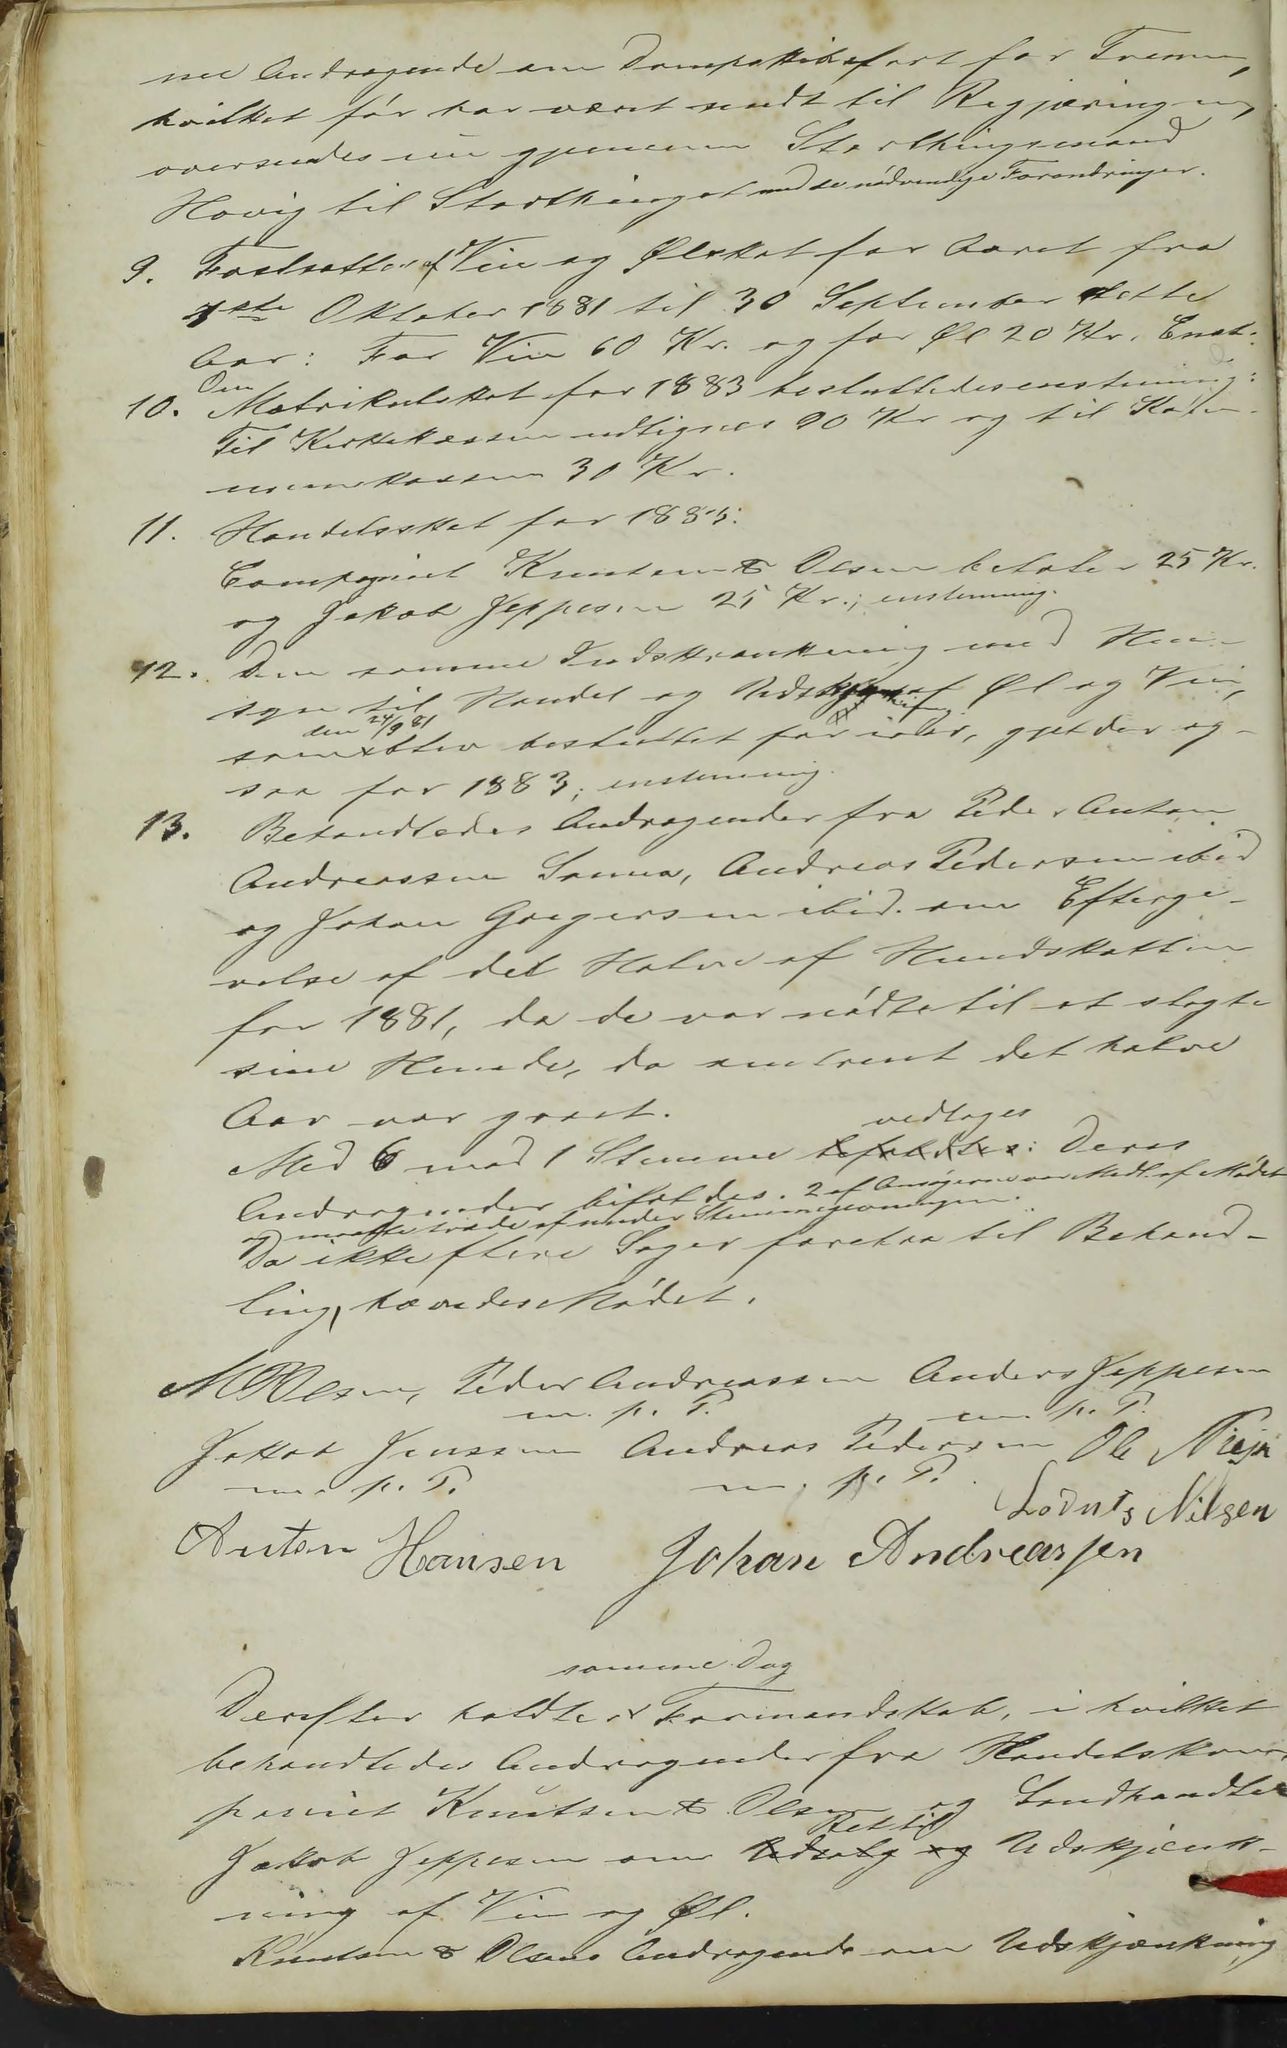 nee Andragende om Dampskibsfart for Tromm,
hvilket før har været sendt til Regjæringen,
oversendes nu gjennem Storthingsmand
Hovig til Storthinget med de nødvendige Forandringer.
9. Fastsattes Vin og Ølskat for Aaret fra
1ste Oktober 1881 til 30 September dette
Aar: For Vin 60 Kr. og for Øl 20 Kr. Enst.
10. Om Matrikulskat for 1883 besluttedes enstemmig:
Til Kirkekassen udlignes 90 Kr og til Kom-
munekassen 30 Kr.
11. Handelsskat for 1883:
Compagniet Knutsen & Olsen betaler 25 Kr.
og Jakob Jeppesen 25 Kr.; enstemmig.
12. Den samme Indskrænkning med Hen-
syn til Handel og Udskjænkning af Øl og Vin,
som den 24/9 81 blev besluttet for iaar, gjelder og-
saa for 1883; enstemmig.
13. Behandledes Andragender fra Peder Anton
Andreassen Sanna, Andreas Pedersen ibid
og Johan Gregersen ibid. om Eftergi-
velse af det Halve af Hundskatten
for 1881, da de var nødte til at slagte
sine Hunde, da omtrent det halve
Aar var gaaet.
Med 6 mod 1 Stemme vedtoges: Deres
Andragender bifaldes. 2 af Ansøgerne var Medl. af Mødet
og maatte træde af under Stemmegivningen.
Da ikke flere Sager foretoa til Behand-
ling, hævedes Mødet.
M Olsen, Peder Andreassen Anders Jeppesen
m. p. P. m. p. P.
Jakob Jenssen Andreas Pedersen Ole
m. p. P. m. p. P.
Lornts Nilsen
Anton Hansen Johan Andreassen
samme Dag
Derefter holdtes Formandskab, i hvilket
behandledes Andragender fra Handelskom-
paniet Knutsen & Olsen og Landhandler
Jakob Jeppesen om Ret til Udsalg og Udskjænk-
ning af Vin og Øl.
Knutsen & Olsens Andragende om Udskjænkning